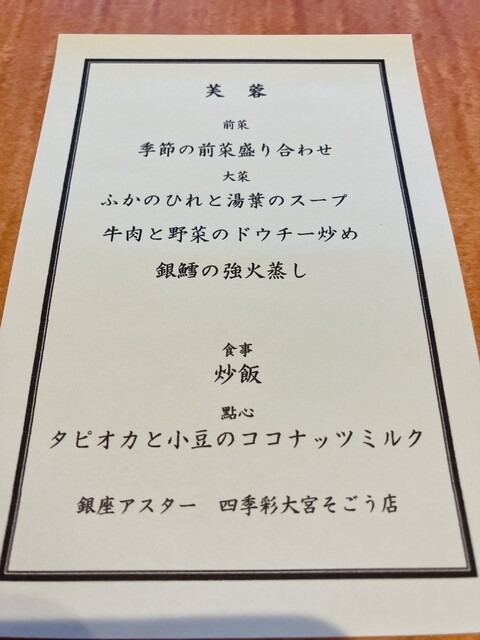 芙蓉
前菜
季節の前菜盛り合わせ
大菜
ふかのひれと湯葉のスープ
牛肉と野菜のドウチー炒め
銀鱈の強火蒸し
食事
炒飯
點心
タピオカと小豆のココナッツミルク
銀座アスター 四季彩大宮そごう店